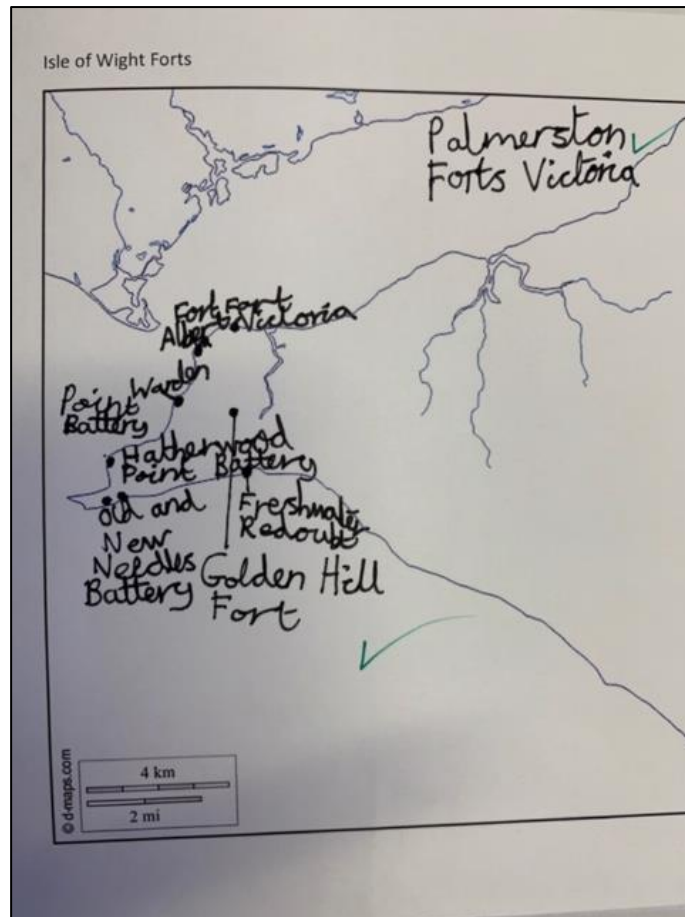 Isle of Wight Forts
Palmerston
Forts Victoria
Fort Fort
Albert Victoria
Warden
Point
Battery
Hatherwood
Point Battery
Old and
New
Needles
Battery
Freshwater
Redoubt
Golden Hill
Fort
4 km
2 mi
© d-maps.com